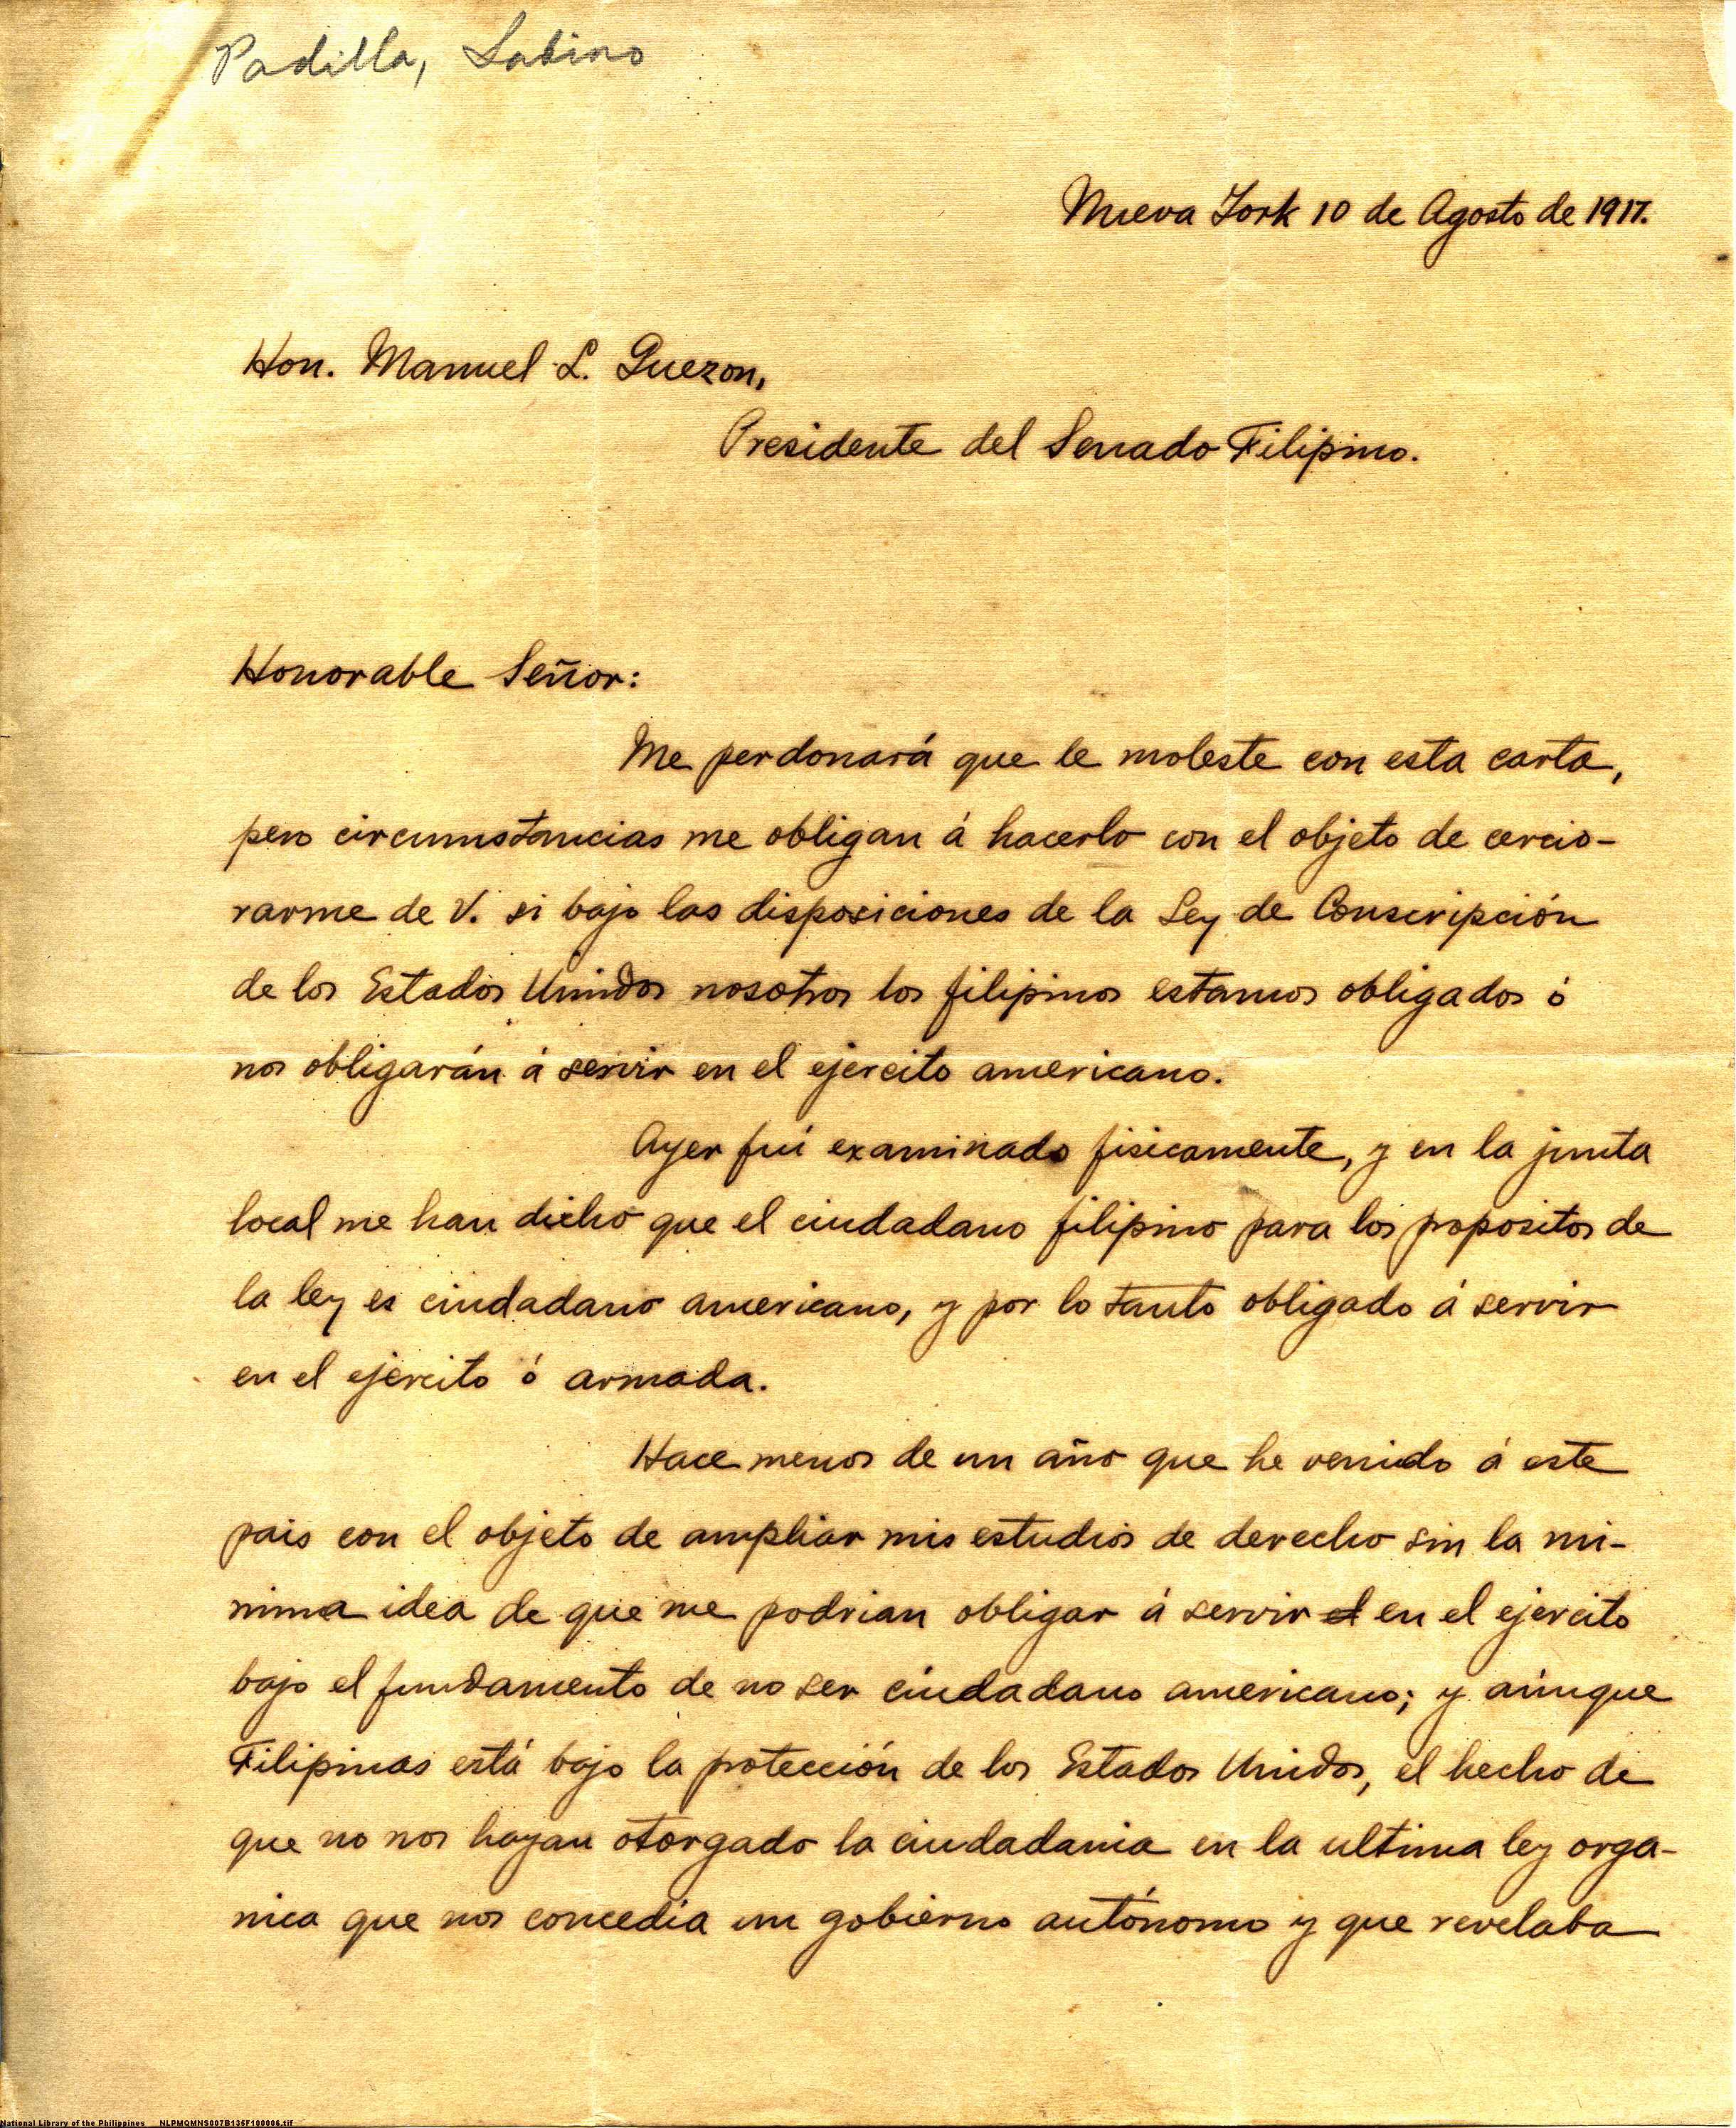 Padilla, Sabino
Nueva York 10 de Agosto de 1917.
Hon. Manuel L. Quezon,
Presidente del Senado Filipino.
Honorable Señor:
Me perdonará que le moleste con esta carta,
pero circumstancias me obligan á hacerlo con el objeto de cercio-
rarme de V. si bajo las disposiciones de la Ley de Conscripción
de los Estados Unidos nosotros los filipinos estamos obligados ó
nos obligarán á servir en el ejercito americano.
Ayer fuí examinado fisicamente, y en la junta
local me han dicho que el ciudadano filipino para los propositos de
la ley es ciudadano americano, y por lo tanto obligado á servir
en el ejercito ó armada.
Hace menos de un año que he venido á este
pais con el objeto de ampliar mis estudios de derecho sin la mi-
nima idea de que me podrian obligar á servir el en el ejercito
bajo el fundamento de no ser ciudadano americano; y aunque
Filipinas está bajo la protección de los Estados Unidos, el hecho de
que no nos hayan otorgado la ciudadania en la ultima ley orga-
nica que nos concedia un gobierno autónomo y que revelaba
National Library of the Philippines NLPMQMNS007B135F100006.tif